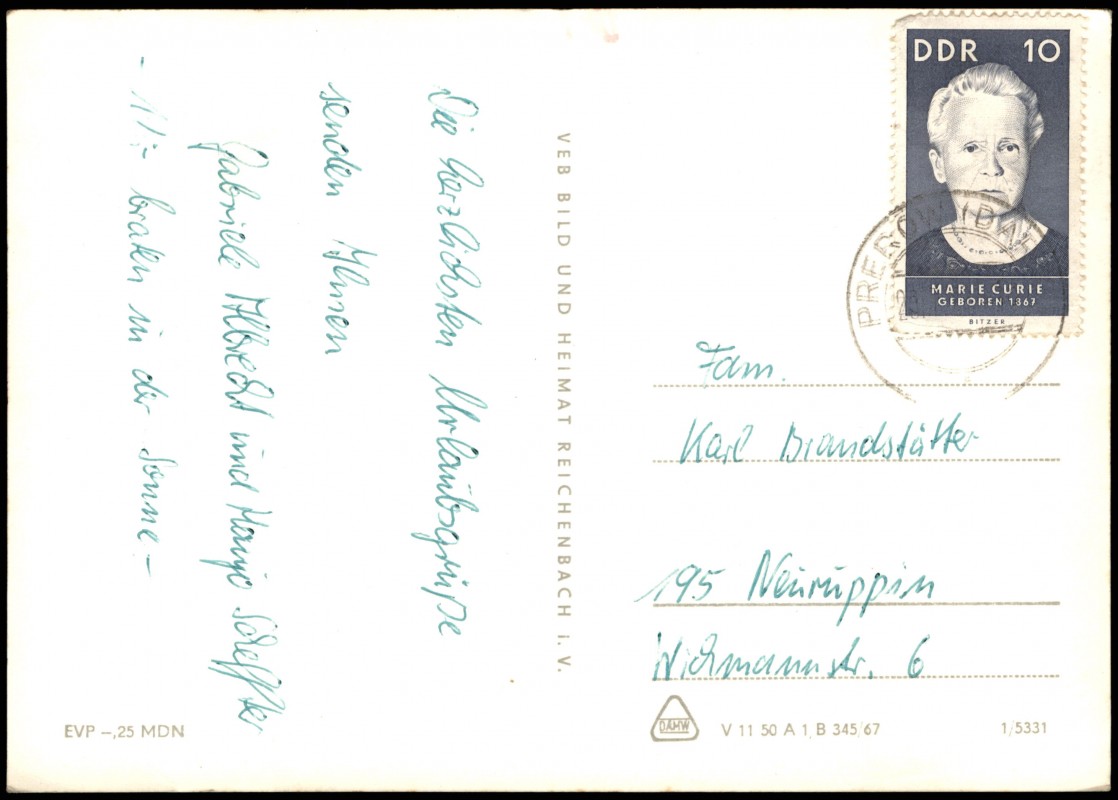 Die herzlichsten Urlaubsgrüße
senden Ihnen
Gabriele Albrecht und
- braten in der Sonne -
VEB BILD UND HEIMAT REICHENBACH I. V.
DDR 10
MARIE CURIE
GEBOREN 1867
BITZER
PREROW (DAR
Fam.
Karl Brandstätter
195 Neuruppin
Wichmannstr. 6
EVP –,25 MDN
DAMW
V 11 50 A 1 B 345/67
1/5331